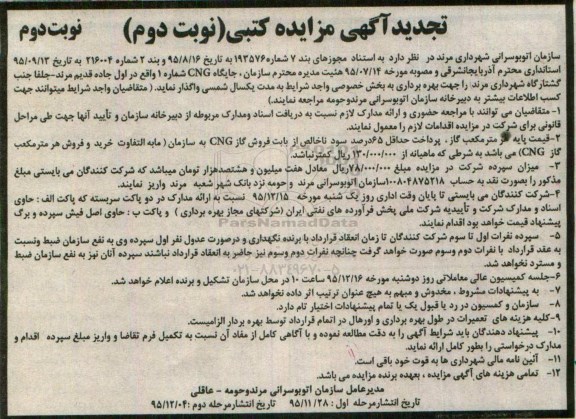 تجدیدآگهی مزایده کتبی(نوبت دوم) نوبت دوم
سازمان اتوبوسرانی شهرداری مرند در نظر دارد به استناد مجوزهای بند ۷ شماره۱۹۳۵۷۶ به تاریخ ۹۵/۸/۱۶ و بند ۲ شماره ۲۱۶۰۰۴ به تاریخ ۹۵/۰۹/۱۳
استانداری محترم آذربایجانشرقی و مصوبه مورخه ۹۵/۰۷/۱۴ هئیت مدیره محترم سازمان ، جایگاه CNG شماره ۱ واقع در اول جاده قدیم مرند-جلفا جنب
گشتارگاه شهرداری مرند را جهت بهره برداری به بخش خصوصی واجد شرایط به مدت یکسال شمسی واگذار نماید. ( متقاضیان واجد شرایط میتوانند جهت
کسب اطلاعات بیشتر به دبیرخانه سازمان اتوبوسرانی مرندوحومه مراجعه نمایند)
۱-متقاضیان می توانند با مراجعه حضوری و ارائه مدارک لازم نسبت به دریافت اسناد ومدارک مربوطه از دبیرخانه سازمان و تأیید آنها جهت طی مراحل
قانونی برای شرکت در مزایده اقدامات لازم را معمول نمایند.
۲-قیمت پایه هر مترمکعب گاز ، پرداخت حداقل ۶۵درصد سود ناخالص از بابت فروش گاز CNG به سازمان ( مابه التفاوت خرید و فروش هر مترمکعب
گاز CNG) می باشد به شرطی که ماهیانه از ۱۳۰/۰۰۰/۰۰۰ ریال کمترنباشد.
۳- میزان سپرده شرکت در مزایده مبلغ ۷۸/۰۰۰/۰۰۰ریال معادل هفت میلیون و هشتصدهزار تومان میباشد که شرکت کنندگان می بایستی مبلغ
مذکور را بصورت نقد به حساب ۱۰۰۸۰۴۸۷۵۲۱۸سازمان اتوبوسرانی مرند و حومه نزد بانک شهر شعبه مرند واریز نمایند.
۴-شرکت کنندگان می بایستی تا پایان وقت اداری روز یک شنبه مورخه ۹۵/۱۲/۱۵ نسبت به ارائه مدارک در دو پاکت سربسته که پاکت الف : حاوی
اسناد و مدارک شرکت و تأییدیه شرکت ملی پخش فرآورده های نفتی ایران (شرکتهای مجاز بهره برداری ) و پاکت ب : حاوی اصل فیش سپرده و برگ
پیشنهاد قیمت خواهد بود اقدام نمایند.
۵- سپرده نفرات اول تا سوم شرکت کنندگان تا زمان انعقاد قرارداد با برنده نگهداری و درصورت عدول نفر اول سپرده وی به نفع سازمان ضبط ونسبت
به عقد قرارداد با نفرات دوم وسوم صورت خواهد گرفت چنانچه نفرات دوم وسوم نیز حاضر به انعقاد قرارداد نباشند سپرده آنان نیز به نفع سازمان ضبط
و مسترد نخواهد شد.
۶-جلسه کمیسیون عالی معاملاتی روز دوشنبه مورخه ۹۵/۱۲/۱۶ ساعت ۱۰ در محل سازمان تشکیل و برنده اعلام خواهد شد.
۷- به پیشنهادات مشروط ، مخدوش و مبهم به هیچ عنوان ترتیب اثر داده نخواهد شد.
۸- سازمان و کمسیون در رد یا قبول یک یا تمام پیشنهادات اختیار تام دارد.
۹-کلیه هزینه های تعمیرات در طول بهره برداری و اورهال در اتمام قرارداد توسط بهره بردار الزامیست.
۱۰- پیشنهاد دهندگان باید شرایط آگهی را به دقت مطالعه نموده و با آگاهی کامل از مفاد آن نسبت به تکمیل فرم تقاضا و واریز مبلغ سپرده اقدام و
مدارک درخواستی را بطور کامل ارائه نماید.
۱۱- آئین نامه مالی شهرداری ها به قوت خود باقی است.
۱۲- تمامی هزینه های آگهی مزایده ، بعهده برنده مزایده می باشد.
مدیرعامل سازمان اتوبوسرانی مرندوحومه - عاقلی
تاریخ انتشارمرحله اول : ۹۵/۱۱/۲۸ تاریخ انتشارمرحله دوم :۹۵/۱۲/۰۴
ParsNamadData
۰۲۱-۸۸۳۴۹۶۷۰-۵